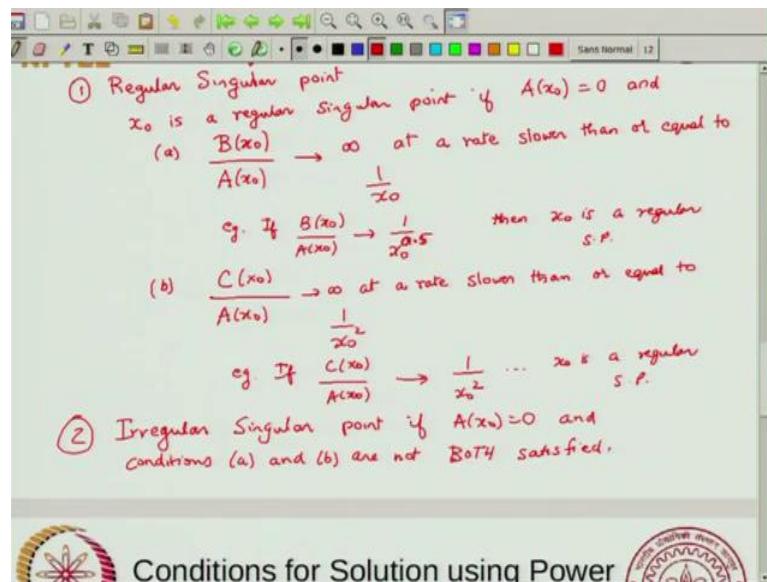 Sans Normal 12
① Regular Singular point
x₀ is a regular singular point if A(x₀) = 0 and
(a) B(x₀)/A(x₀) → ∞ at a rate slower than or equal to 1/x₀
eg. If B(x₀)/A(x₀) → 1/x₀^0.5 then x₀ is a regular S.P.
(b) C(x₀)/A(x₀) → ∞ at a rate slower than or equal to 1/x₀²
eg. If C(x₀)/A(x₀) → 1/x₀² ... x₀ is a regular S.P.
② Irregular Singular point if A(x₀) = 0 and
conditions (a) and (b) are not BOTH satisfied.
Conditions for Solution using Power